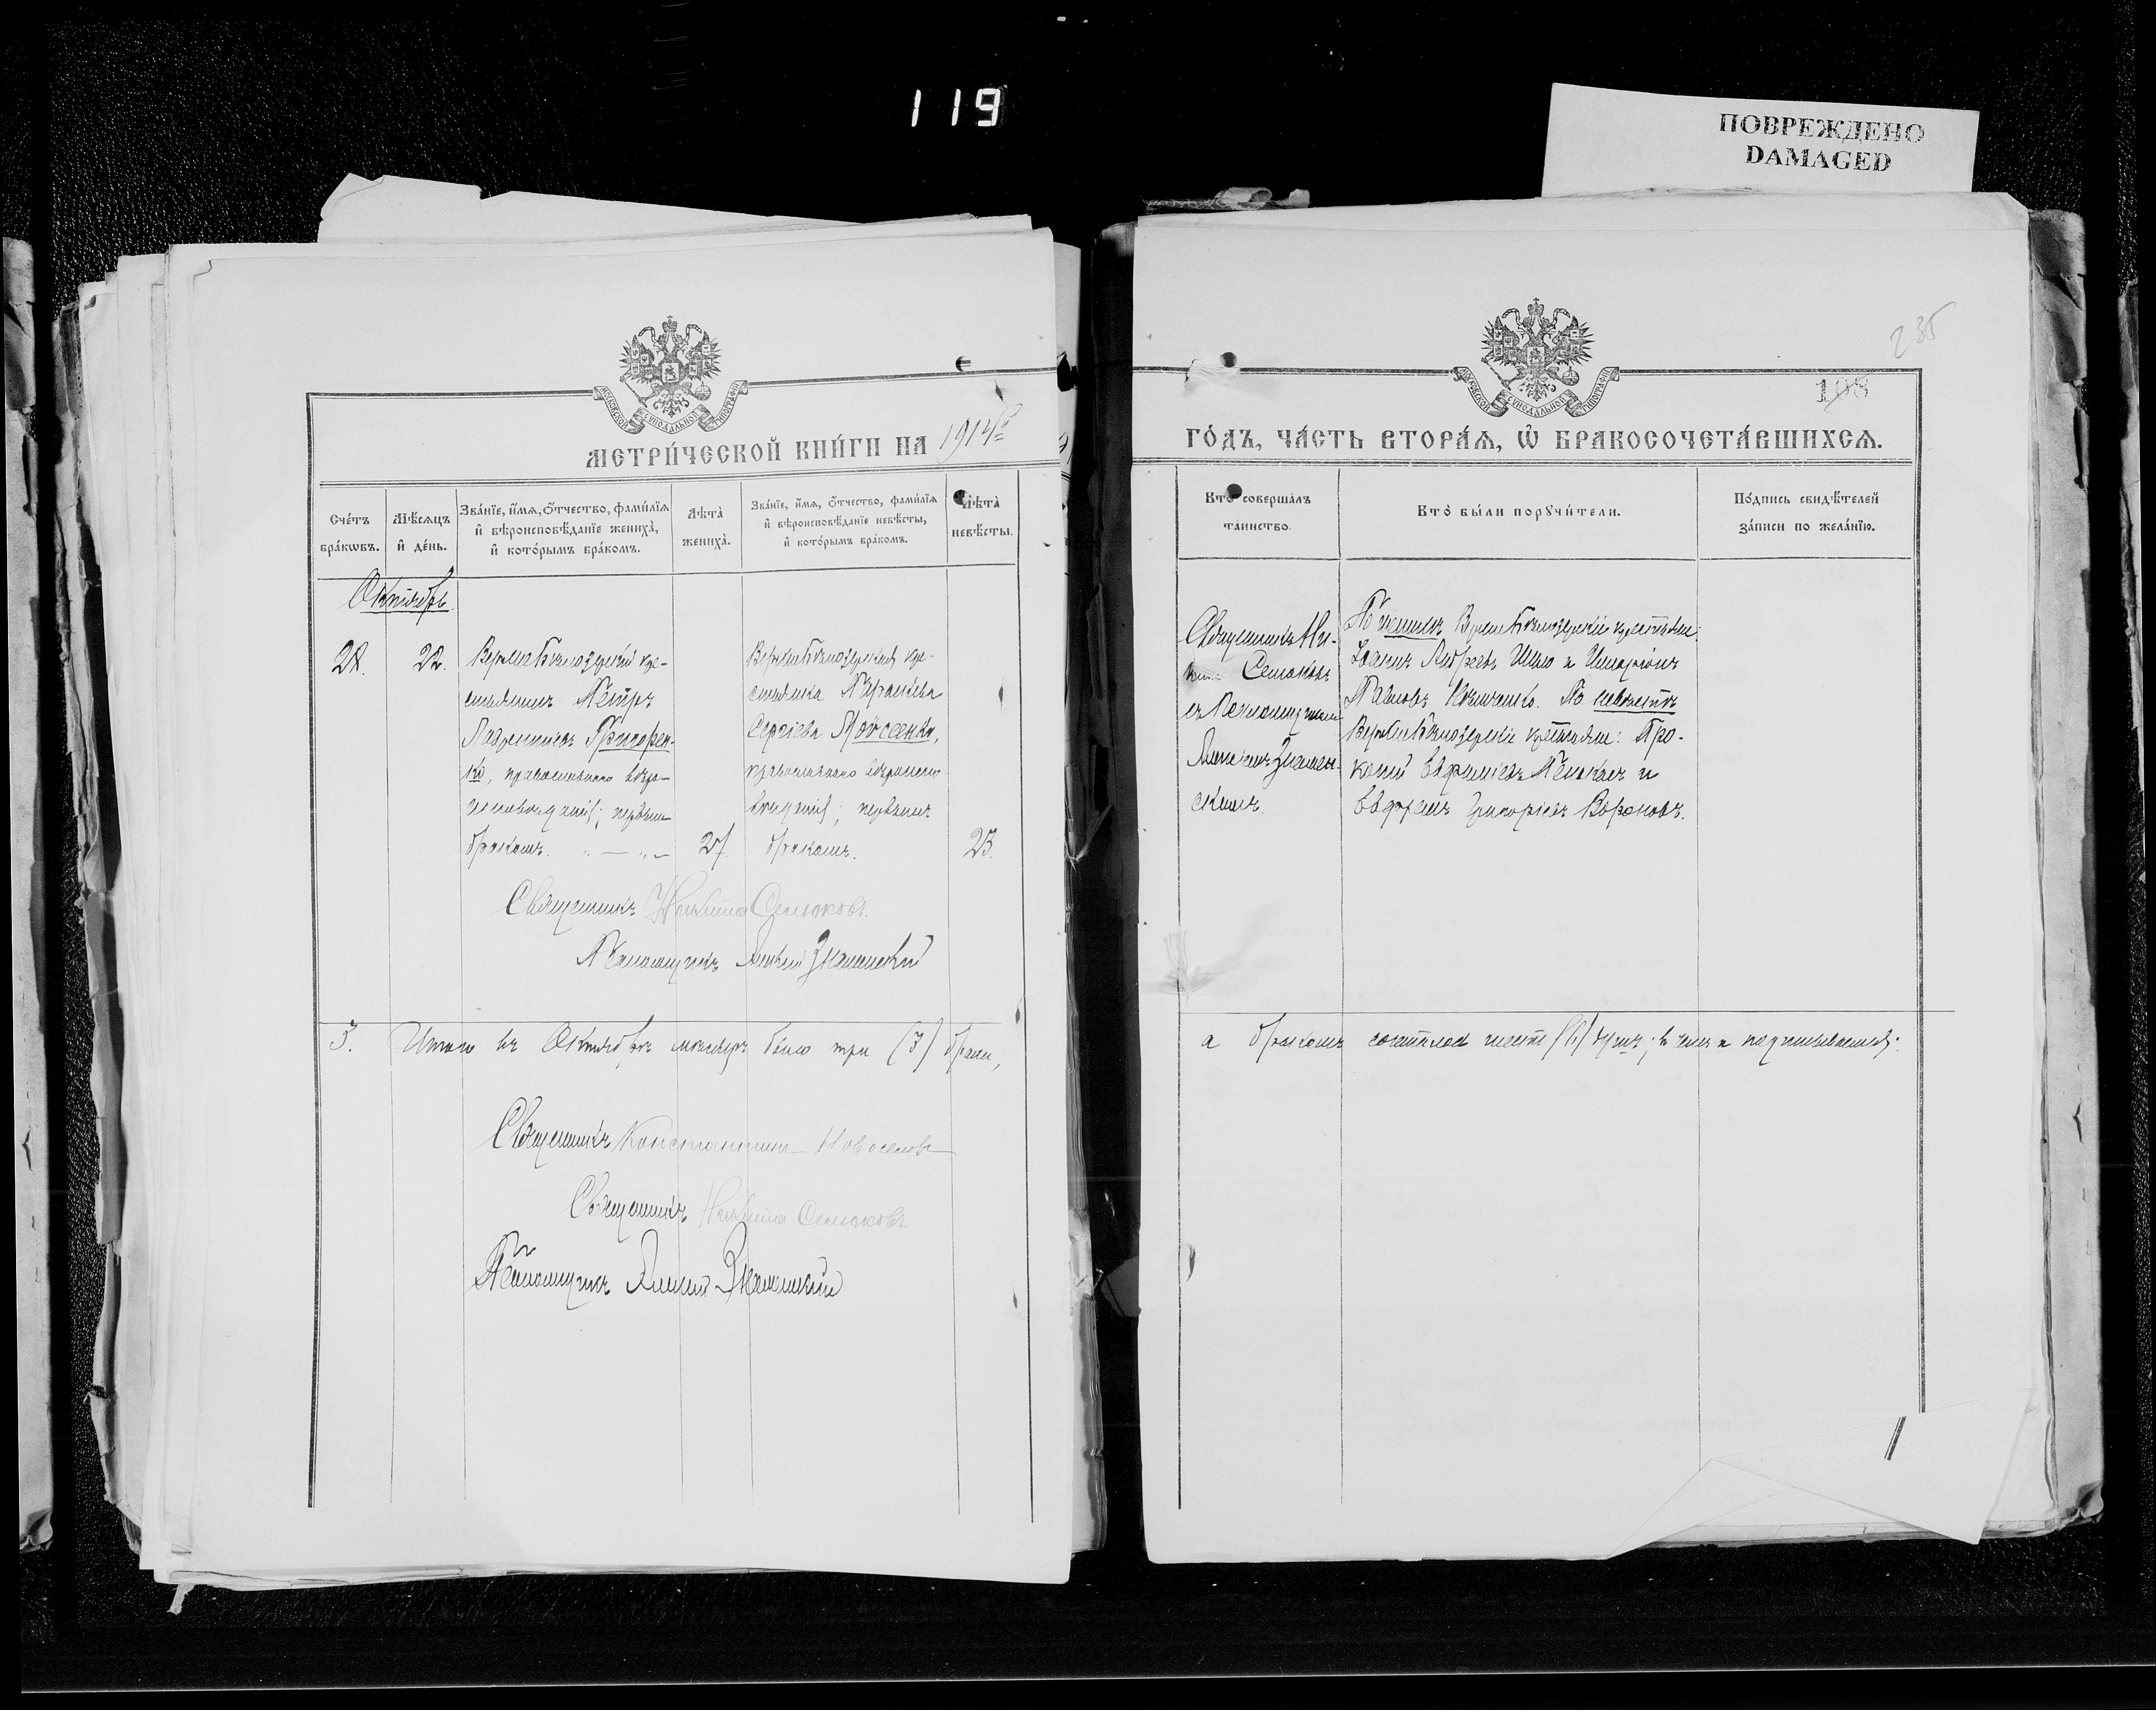 119
ПОВРЕЖДЕНО
DAMAGED
235
108
МОСКОВСКОЙ СУНОДАЛЬНОЙ ТИПОГРАФІИ
МОСКОВСКОЙ СУНОДАЛЬНОЙ ТИПОГРАФІИ
МЕТРИ́ЧЕСКОЙ КНИ́ГИ НА 1914
ГО́ДЪ, ЧА́СТЬ ВТОРА́Я, Ѡ҆ БРАКОСОЧЕТА́ВШИХСЯ.
Сче́тъ бра́кѡвъ.
Мѣ́сяцъ и҆ де́нь.
Зва́нїе, и҆́мя, ѻ҆́тчество, фами́лїя и҆ вѣроисповѣ́данїе жениха̀, и҆ кото́рымъ бра́комъ.
Лѣ́та̀ жениха̀.
Зва́нїе, и҆́мя, ѻ҆́тчество, фами́лїя и҆ вѣроисповѣ́данїе невѣ́сты, и҆ кото́рымъ бра́комъ.
Лѣ́та̀ невѣ́сты.
Кто̀ соверша́лъ та́инство.
Кто̀ бы́ли порꙋчи́тели.
По́дпись свидѣ́телей за́писи по жела́нїю.
Октябрь.
28.
22.
Верхне Бѣлозерскій кре-
стьянинъ Петръ
Лаврентіевъ Григорен-
ко, православнаго вѣро-
исповѣданія; первымъ
бракомъ.
27.
Верхне Бѣлозерская кре-
стьянка Параскева
Сергіева Мойсеенко,
православнаго вѣроиспо-
вѣданія; первымъ
бракомъ.
23.
Священникъ Ни-
кита Семоковъ
съ Псаломщикомъ
Алексіемъ Знамен-
скимъ.
По женихѣ Верхне Бѣлозерскіе крестьяне:
Іоаннъ Андреевъ и Иларіонъ
Павловъ По невѣстѣ
Верхне Бѣлозерскіе крестьяне: Про-
копій Евфиміевъ и
Евфремъ Григорьевъ Вороновъ.
Священникъ Никита Семоковъ.
Псаломщикъ Алексій Знаменскій
3. Итого въ Октябрѣ мѣсяцѣ было три (3) брака,
а бракомъ состоялось шесть (6) душъ; въ чемъ и подписываемся:
Священникъ Константинъ Новоселовъ
Священникъ Никита Семоковъ.
Псаломщикъ Алексій Знаменскій